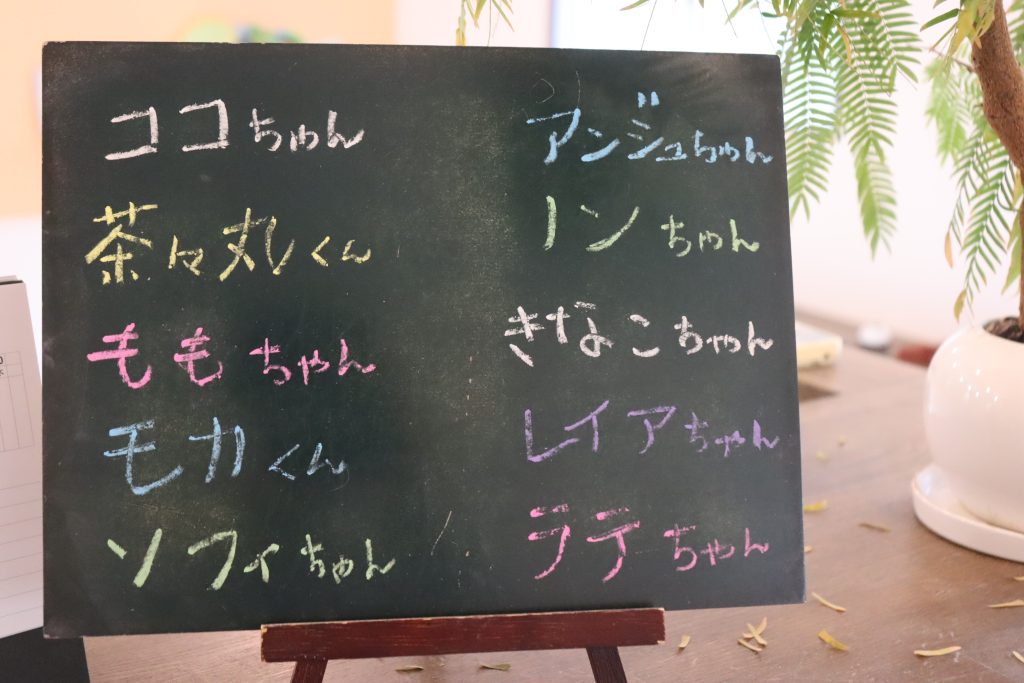 ココちゃん
茶々丸くん
ももちゃん
モカくん
ソフィちゃん
アンジュちゃん
ノンちゃん
きなこちゃん
レイアちゃん
ラテちゃん